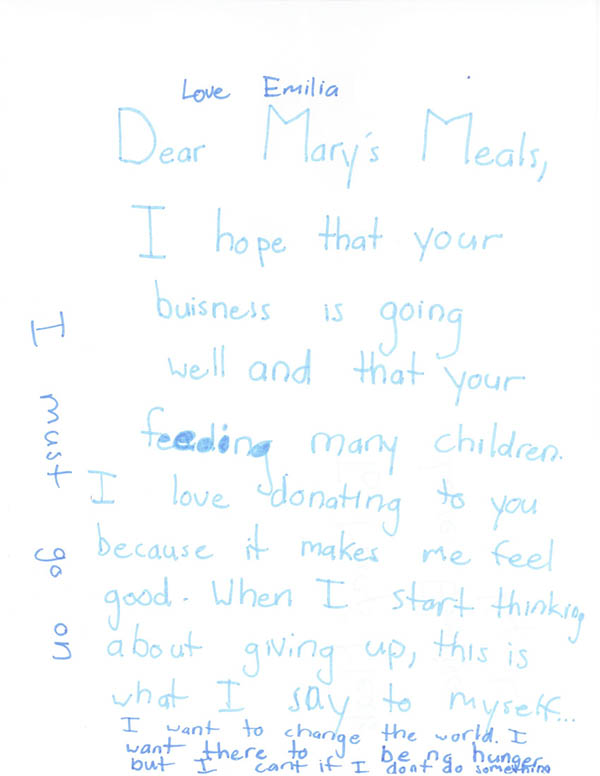 Love Emilia
Dear Mary's Meals,
I hope that your
buisness is going
well and that your
feeding many children.
I love donating to you
because it makes me feel
good. When I start thinking
about giving up, this is
what I say to myself...
I want to change the world. I
want there to be no hunger
but I cant if I dont do something
I must go on